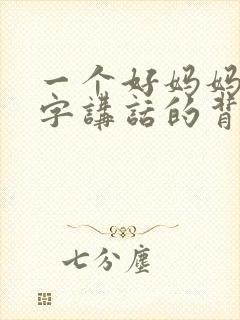 一个好妈妈
字講話的背
七分塵